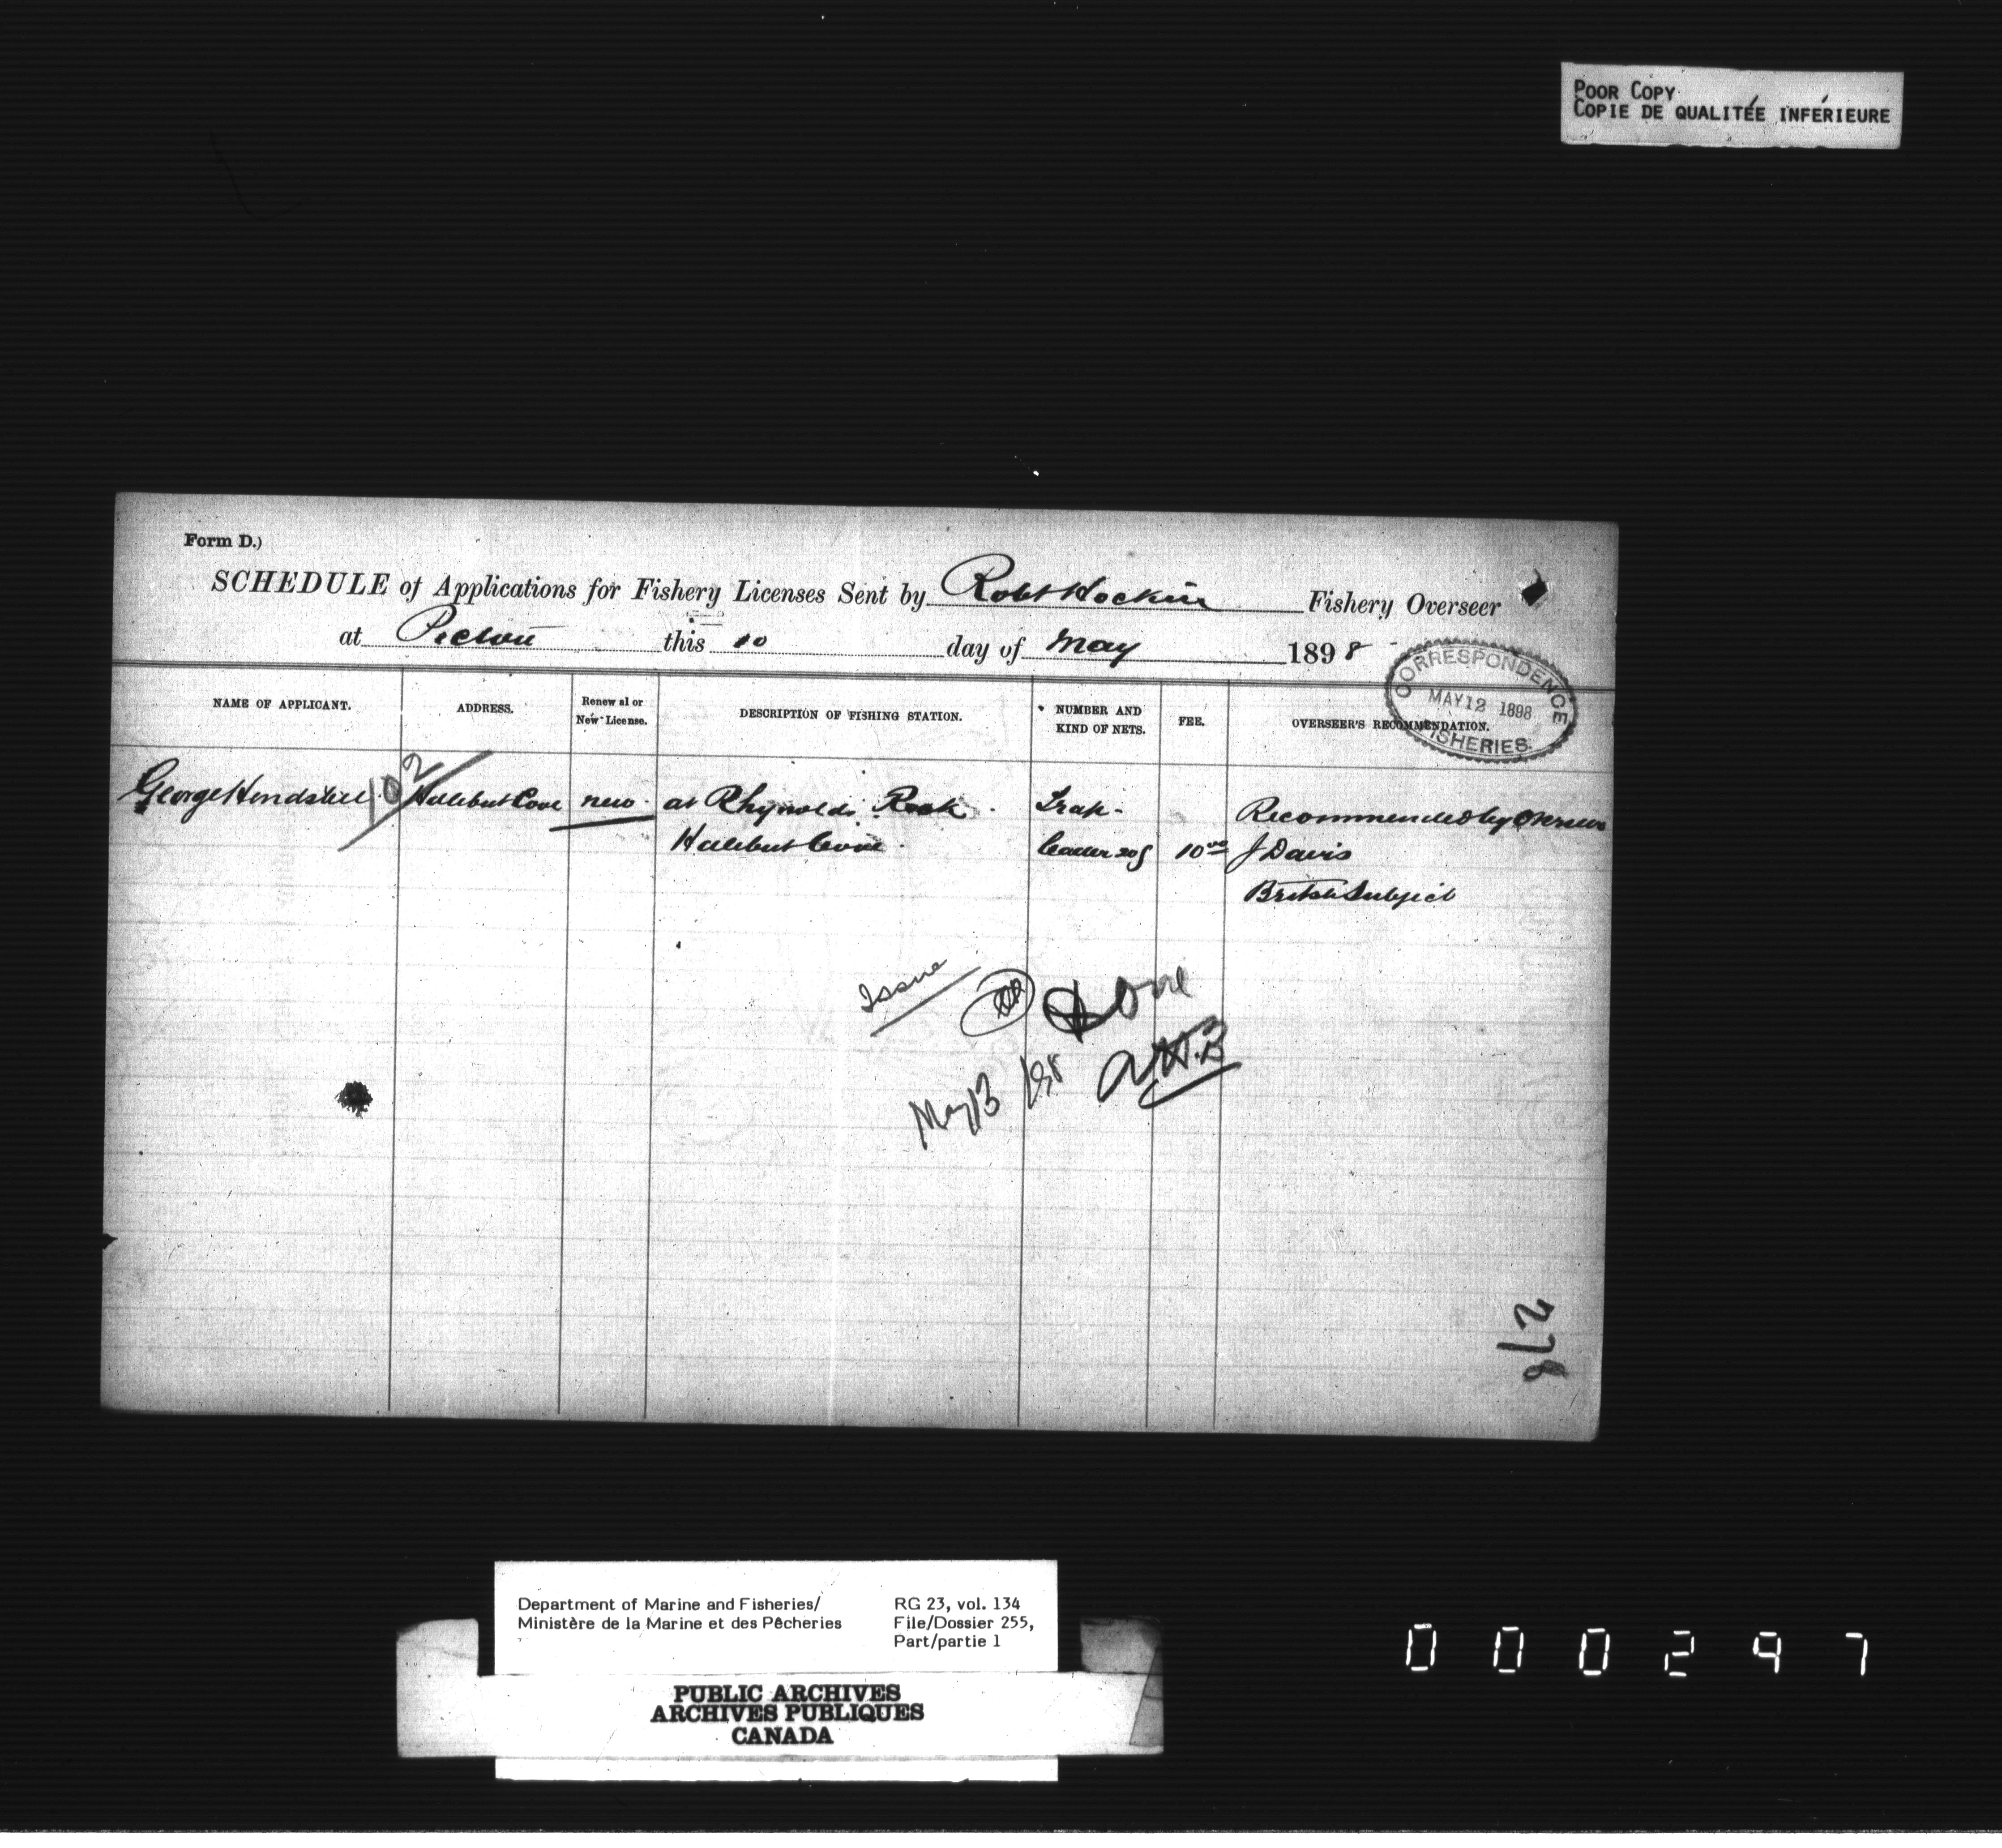 POOR COPY
COPIE DE QUALITÉE INFÉRIEURE
Form D.)
SCHEDULE of Applications for Fishery Licenses Sent by Robt Hockin Fishery Overseer
at Pictou this 10 day of May 1898
CORRESPONDENCE
MAY 12 1898
FISHERIES.
NAME OF APPLICANT.
ADDRESS.
Renewal or
New License.
DESCRIPTION OF FISHING STATION.
* NUMBER AND
KIND OF NETS.
FEE.
OVERSEER'S RECOMMENDATION.
102
George Hendsbee Halibut Cove new. at Rhynolds Rock. Trap- Recommended by
Halibut Cove. leader 10 00 J Davis
British Subject
Issue
Done
May 13 /98
278
Department of Marine and Fisheries/
Ministère de la Marine et des Pêcheries
RG 23, vol. 134
File/Dossier 255,
Part/partie 1
PUBLIC ARCHIVES
ARCHIVES PUBLIQUES
CANADA
000297